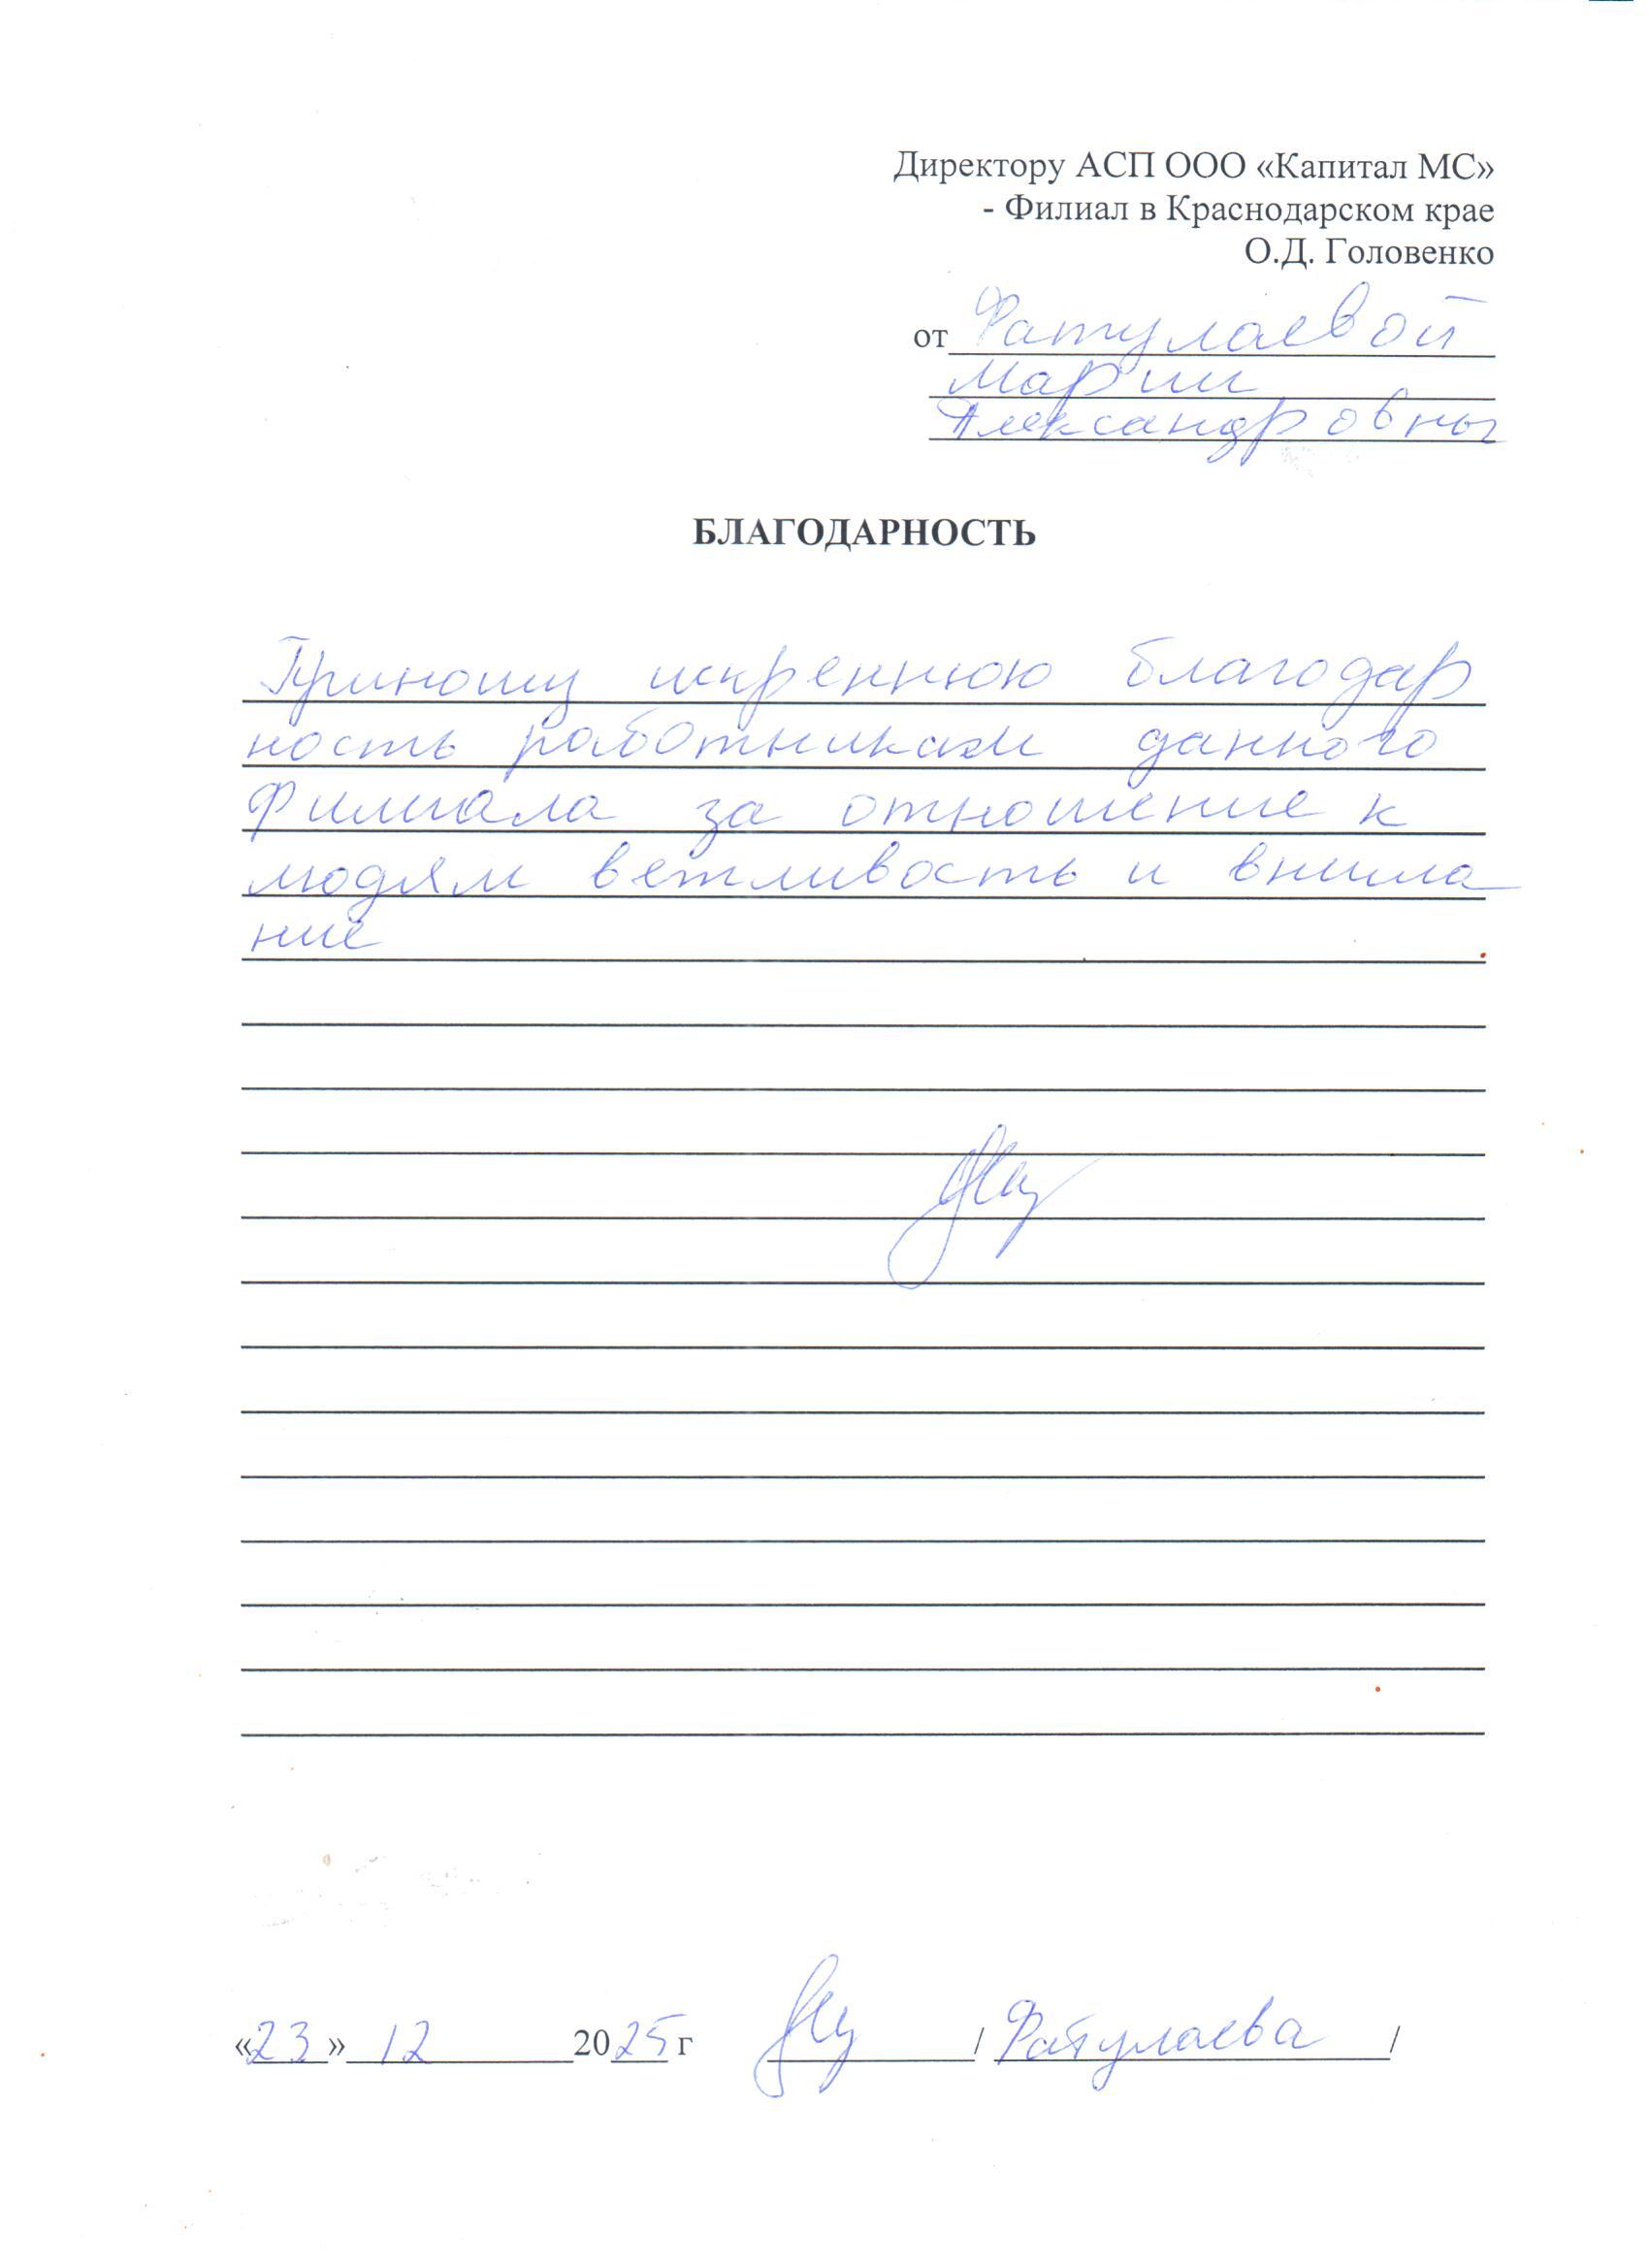 Директору АСП ООО «Капитал МС»
- Филиал в Краснодарском крае
О.Д. Головенко
от Фатулаевой
Марии
Александровны
БЛАГОДАРНОСТЬ
Приношу искреннюю благодар
ность работникам данного
филиала за отношение к
людям ветливость и внима
ние
«23» 12 2025 г / Фатулаева /